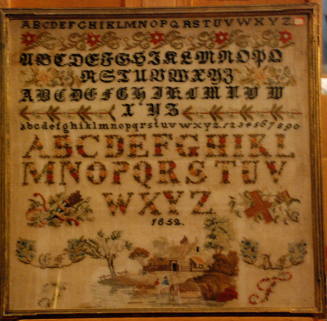 ABCDEFGHIKLMNOPQRSTUVWXYZ
ABCDEFGHIKLMNOPQ
RSTUVWXYZ
ABCDEFGHIKLMNUVW
XYZ
abcdefghijklmnopqrstuvwxyz.1234567890
ABCDEFGHIKL
MNOPQRSTUV
WXYZ
1852.